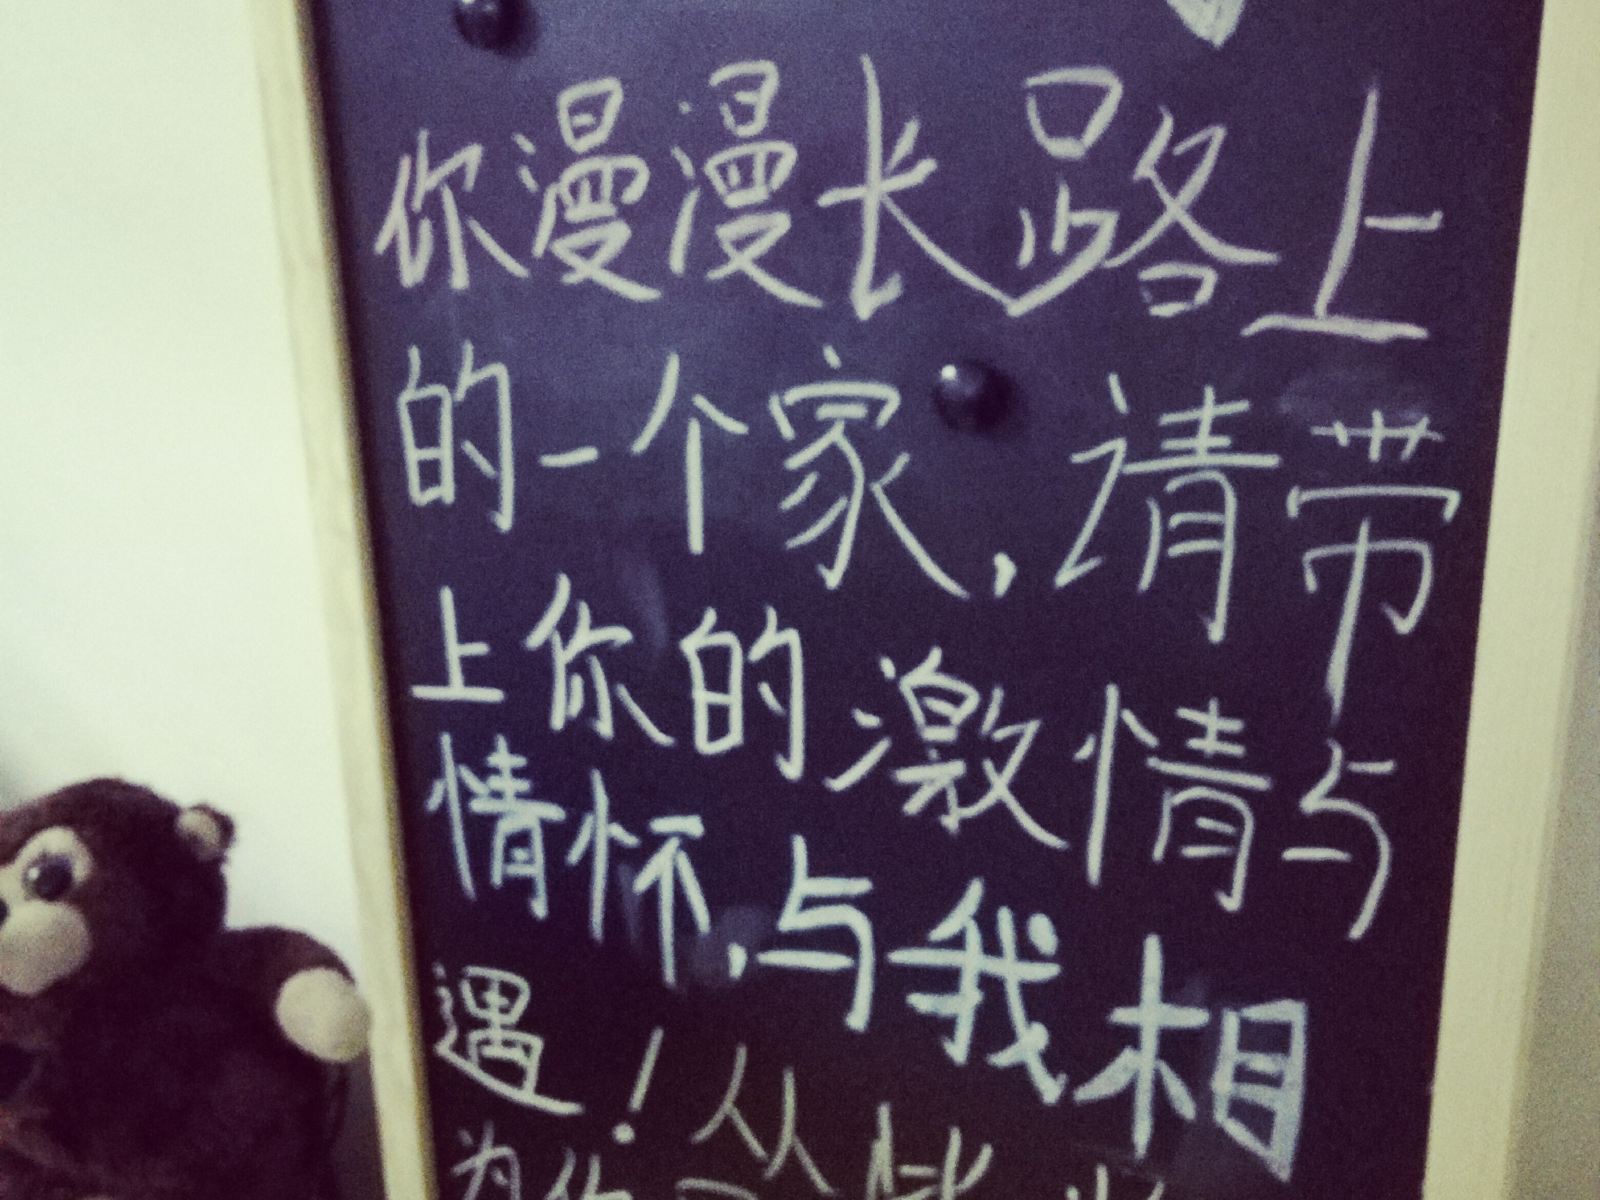 你漫漫长路上
的一个家，请带
上你的激情与
情怀，与我相
遇！从
为你